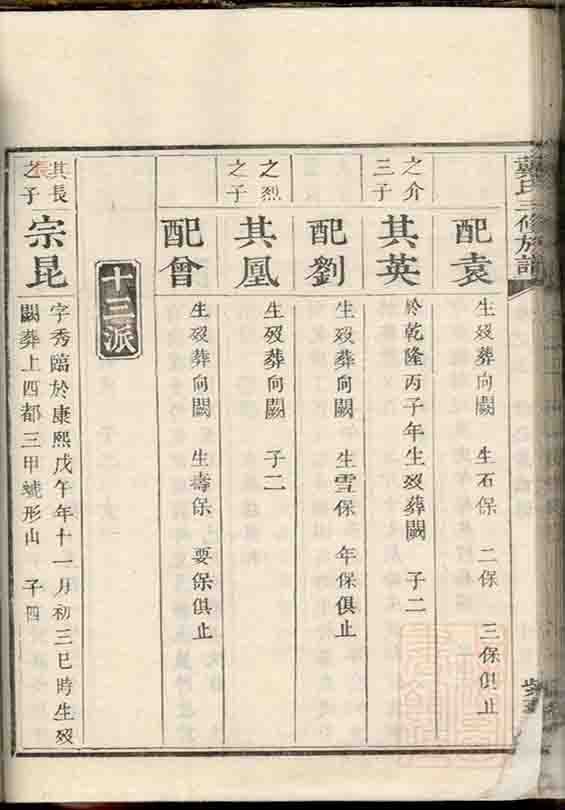 氏三修族譜
配袁
生歿葬向闕 生石保 二保 三保俱止
之介
三子
其英
於乾隆丙子年生歿葬闕 子二
配劉
生歿葬向闕 生雪保 年保俱止
之烈
之子
其凰
生歿葬向闕 子二
配曾
生歿葬向闕 生壽保 要保俱止
十三派
其長
長之子
宗昆
字秀臨於康熙戊午年十一月初三巳時生歿
闕葬上四都三甲號形山 子四